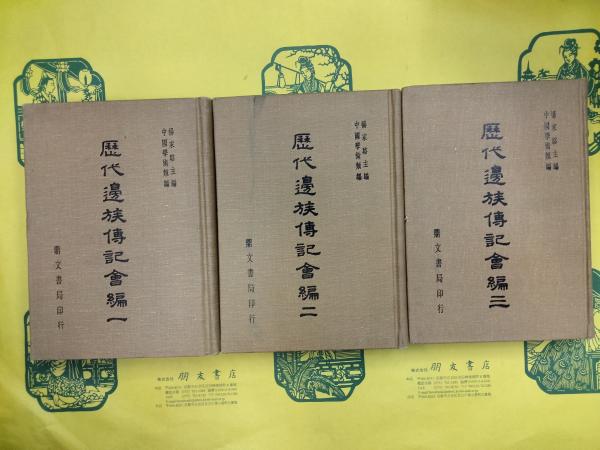 楊家駱主編
中國學術類編
歷代邊族傳記會編一
鼎文書局印行
楊家駱主編
中國學術類編
歷代邊族傳記會編二
鼎文書局印行
楊家駱主編
中國學術類編
歷代邊族傳記會編三
鼎文書局印行
株式会社 朋友書店
株式会社 朋友書店